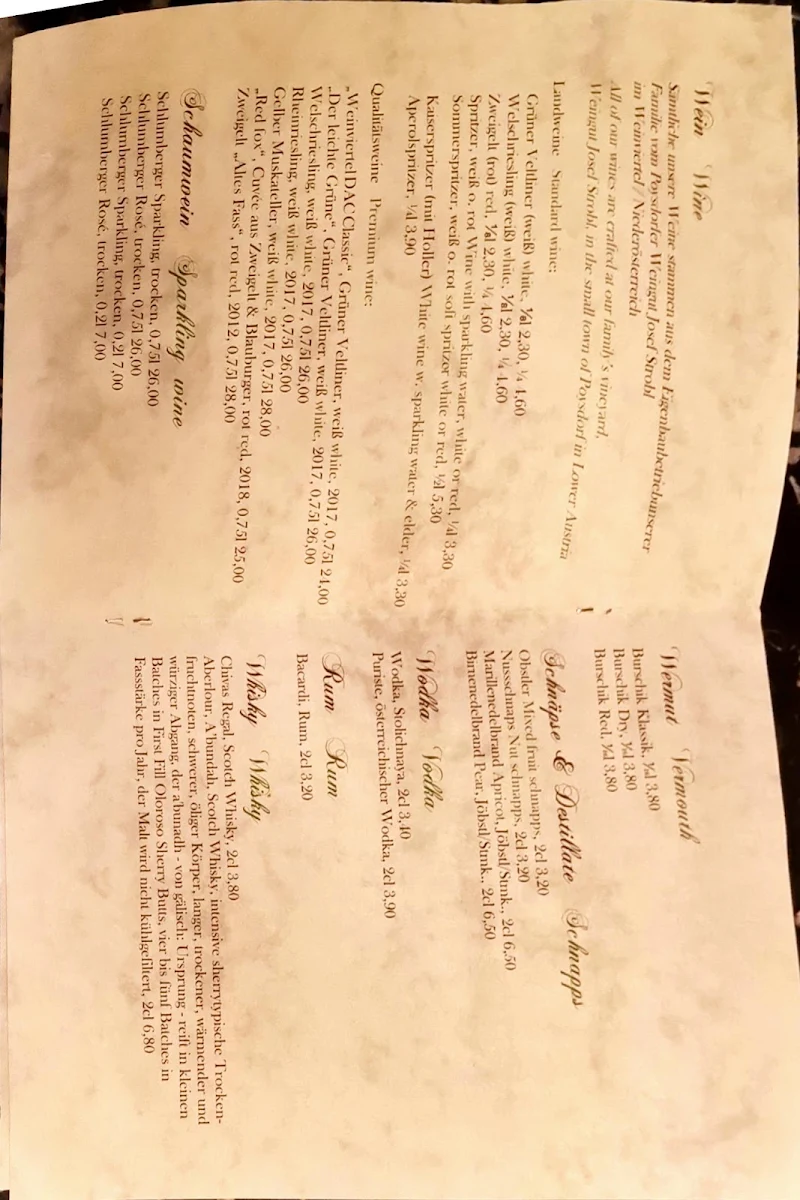 Wein Wine
Sämtliche unsere Weine stammen aus dem Eigenbaubetrieb unserer
Familie vom Poysdorfer Weingut Josef Strobl
im Weinviertel / Niederösterreich
All of our wines are crafted at our family's vineyard,
Weingut Josef Strobl, in the small town of Poysdorf in Lower Austria
Landweine Standard wine:
Grüner Veltliner (weiß) white, ⅛l 2,30, ¼ 4,60
Welschriesling (weiß) white, ⅛l 2,30, ¼ 4,60
Zweigelt (rot) red, ⅛l 2,30, ¼ 4,60
Spritzer, weiß o. rot Wine with sparkling water, white or red, ¼l 3,30
Sommerspritzer, weiß o. rot soft spritzer white or red, ½l 5,30
Kaiserspritzer (mit Holler) White wine w. sparkling water & elder, ¼l 3,30
Aperolspritzer, ¼l 3,90
Qualitätsweine Premium wine:
„Weinviertel DAC Classic“, Grüner Veltliner, weiß white, 2017, 0,75l 24,00
„Der leichte Grüne“, Grüner Veltliner, weiß white, 2017, 0,75l 26,00
Welschriesling, weiß white, 2017, 0,75l 26,00
Rheinriesling, weiß white, 2017, 0,75l 26,00
Gelber Muskateller, weiß white, 2017, 0,75l 28,00
„Red fox“, Cuvée aus Zweigelt & Blauburger, rot red, 2018, 0,75l 25,00
Zweigelt „Altes Fass“, rot red, 2012, 0,75l 28,00
Schaumwein Sparkling wine
Schlumberger Sparkling, trocken, 0,75l 26,00
Schlumberger Rosé, trocken, 0,75l 26,00
Schlumberger Sparkling, trocken, 0,2l 7,00
Schlumberger Rosé, trocken, 0,2l 7,00
Wermut Vermouth
Burschik Klassik, ⅛l 3,80
Burschik Dry, ⅛l 3,80
Burschik Red, ⅛l 3,80
Schnäpse & Destillate Schnapps
Obstler Mixed fruit schnapps, 2cl 3,20
Nussschnaps Nut schnapps, 2cl 3,20
Marillenedelbrand Apricot, Jöbstl/Stmk., 2cl 6,50
Birnenedelbrand Pear, Jöbstl/Stmk., 2cl 6,50
Wodka Vodka
Wodka, Stolichnaya, 2cl 3,40
Puriste, österreichischer Wodka, 2cl 3,90
Rum Rum
Bacardi, Rum, 2cl 3,20
Whisky Whisky
Chivas Regal, Scotch Whisky, 2cl 3,80
Aberlour, A'bundah, Scotch Whisky, intensive sherrytypische Trocken-
fruchtnoten, schwerer, öliger Körper, langer, trockener, wärmender und
würziger Abgang, der a'bunadh - von gälisch: Ursprung - reift in kleinen
Batches in First Fill Oloroso Sherry Butts, vier bis fünf Batches in
Fassstärke pro Jahr, der Malt wird nicht kühlgefiltert, 2cl 6,80